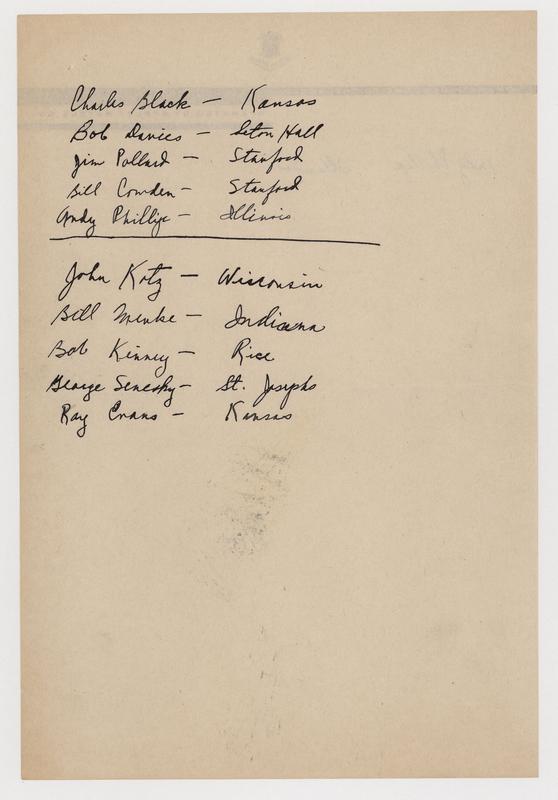 Charles Black — Kansas
Bob Davies — Seton Hall
Jim Pollard — Stanford
Bill Cowden — Stanford
Andy Phillip — Illinois
John Kotz — Wisconsin
Bill Menke — Indiana
Bob Kinney — Rice
George Senesky — St. Josephs
Ray Evans — Kansas